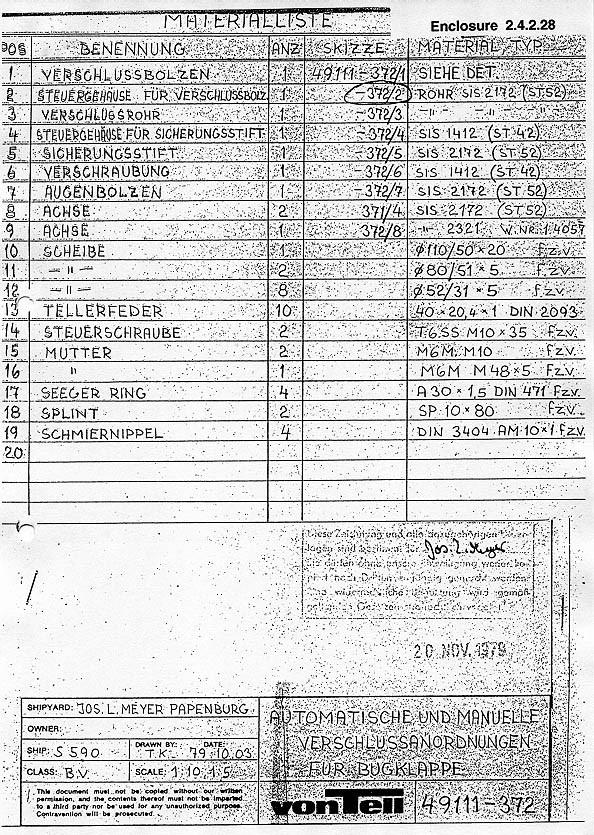 MATERIALLISTE
Enclosure 2.4.2.28
POS BENENNUNG ANZ SKIZZE MATERIAL TYP
1 VERSCHLUSSBOLZEN 1 49111-372/1 SIEHE DET.
2 STEUERGEHÄUSE FÜR VERSCHLUSSBOLZ 1 -372/2 ROHR SIS 2172 (ST52)
3 VERSCHLUSROHR 1 -372/3 -"- -"- "
4 STEUERGEHÄUSE FÜR SICHERUNGSSTIFT 1 -372/4 SIS 1412 (ST 42)
5 SICHERUNGSSTIFT 1 -372/5 SIS 2172 (ST.52)
6 VERSCHRAUBUNG 1 -372/6 SIS 1412 (ST.42)
7 AUGENBOLZEN 1 -372/7 SIS 2172 (ST.52)
8 ACHSE 2 371/4 SIS 2172 (ST52)
9 ACHSE 1 372/8 -"- 2321 W.NR.1.4057
10 SCHEIBE 1 Ø110/50×20 fzv.
11 -"- 2 Ø80/51×5 fzv.
12 -"- 8 Ø52/31×5 fzv.
13 TELLERFEDER 10 40×20,4×1 DIN 2093
14 STEUERSCHRAUBE 2 T6SS M10×35 fzv.
15 MUTTER 2 M6M M10 fzv.
16 " 1 M6M M48×5 fzv.
17 SEEGER RING 4 A30×1,5 DIN 471 fzv.
18 SPLINT 2 SP 10×80 fzv.
19 SCHMIERNIPPEL 4 DIN 3404 AM 10×1 fzv.
20
Diese Zeichnung und alle dazugehörigen
lagen sind bestimmt für Jos. L. Meyer
Sie dürfen ohne unsere weder ko-
piert noch Dritten zugängig gemacht werden.
wird gemäß
20 NOV. 1979
SHIPYARD: JOS. L. MEYER PAPENBURG
OWNER:
SHIP: S 590 DRAWN BY: T.K. DATE: 79.10.03
CLASS: B.V SCALE: 1:10 1:5
This document must not be copied without our written
permission, and the contents thereof must not be imparted
to a third party nor be used for any unauthorized purpose.
Contravention will be prosecuted.
AUTOMATISCHE UND MANUELLE
VERSCHLUSSANORDNUNGEN
FÜR BUGKLAPPE
von Tell 49111-372